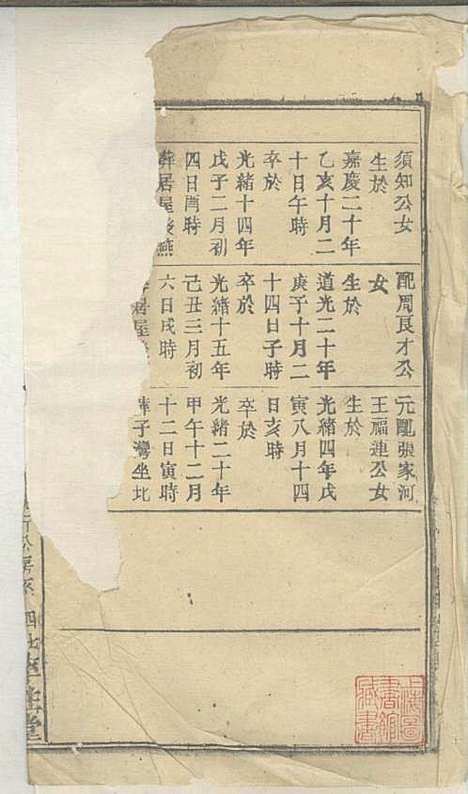 須知公女
生於
嘉慶二十年
乙亥十月二
十日午時
卒於
光緒十四年
戊子二月初
四日酉時
葬居屋後燕
配周良才公
女
生於
道光二十年
庚子十月二
十四日子時
卒於
光緒十五年
己丑三月初
六日戌時
居屋
元配張家河
王福連公女
生於
光緒四年戊
寅八月十四
日亥時
卒於
光緒二十年
甲午十二月
十二日寅時
葬子灣坐北
公房
四七
孝
堂
上海圖
書館
藏書